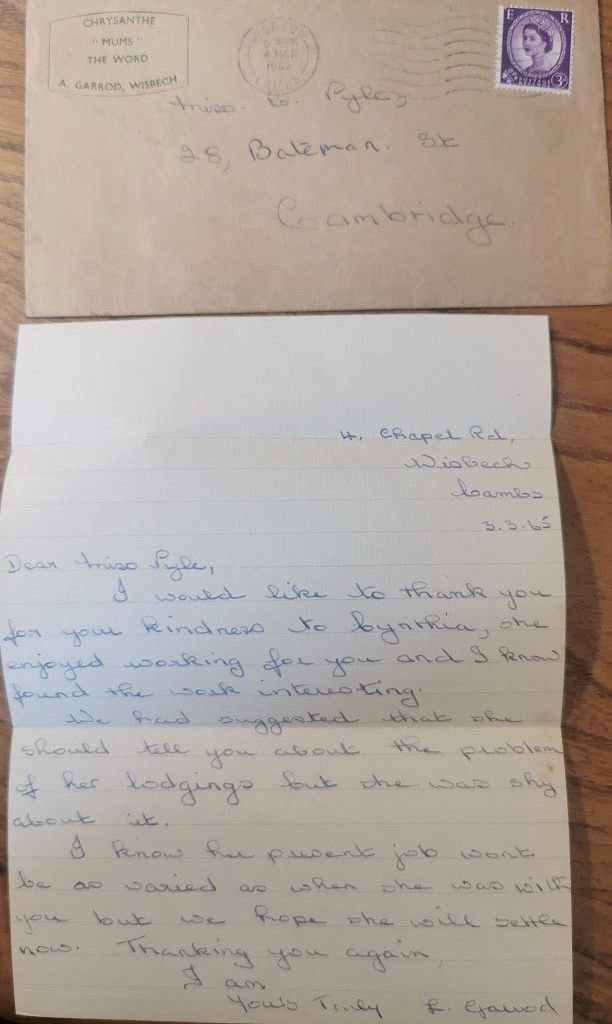 CHRYSANTHE
"MUMS"
THE WORD
A. GARROD, WISBECH
E R
3D
Miss. C. Pyle,
28, Bateman. St
Cambridge.
4. Chapel Rd,
Wisbech
Cambs
3.3.65
Dear Miss Pyle,
I would like to thank you
for your kindness to Cynthia, she
enjoyed working for you and I know
found the work interesting.
We had suggested that she
should tell you about the problem
of her lodgings but she was shy
about it.
I know her present job wont
be as varied as when she was with
you but we hope she will settle
now. Thanking you again,
I am
Yours Truly L. Garrod